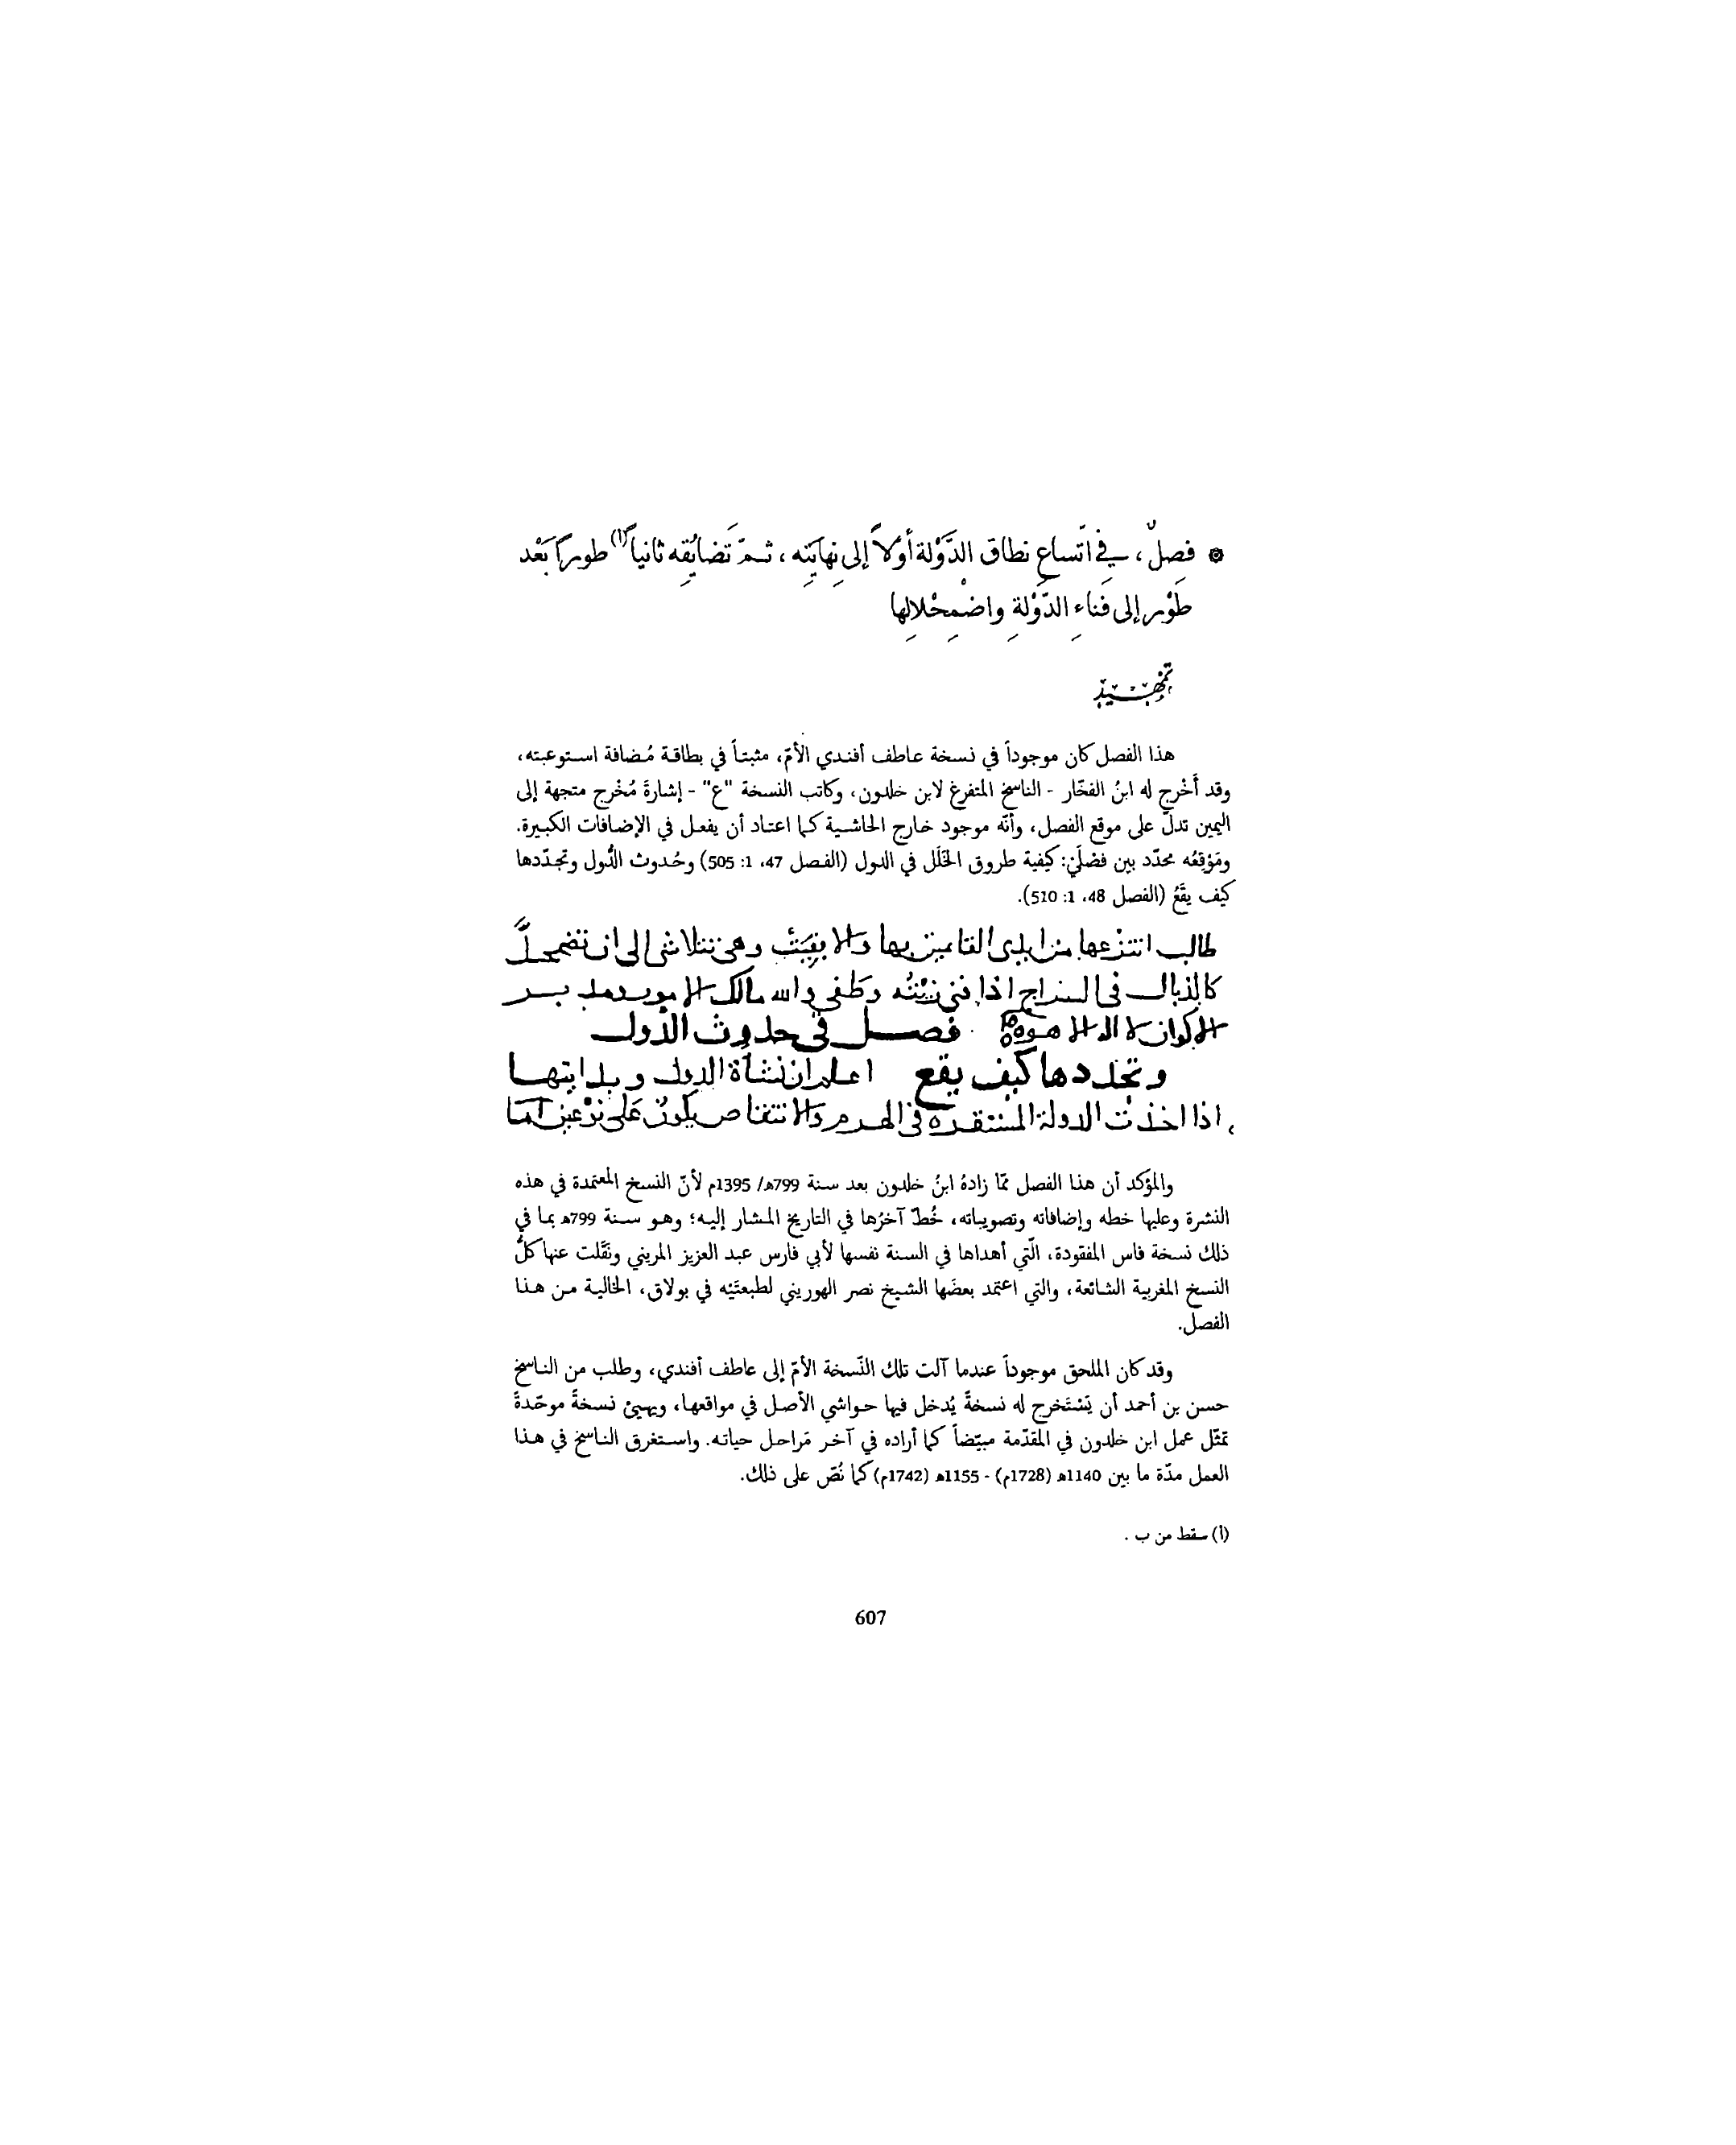 ❁ فصلٌ، في اتّساع نطاق الدَّوْلة أوّلاً إلى نِهايَتِه، ثمّ تَضايُقِه ثانياً(أ) طوراً بَعْد
طَوْر إلى فَناءِ الدَّوْلةِ واضْمِحْلالِها
تمهيد
هذا الفصل كان موجوداً في نسخة عاطف أفندي الأمّ، مثبتاً في بطاقة مُضافة استوعبته،
وقد أَخْرج له ابنُ الفخّار - الناسخ المتفرغ لابن خلدون، وكاتب النسخة "ع" - إشارةَ مُخْرج متجهة إلى
اليمين تدلّ على موقع الفصل، وأنّه موجود خارج الحاشية كما اعتاد أن يفعل في الإضافات الكبيرة.
ومَوْقِعُه محدّد بين فصْلَيْ: كيفية طروق الخَلَل في الدول (الفصل 47، 1: 505) وحُدوث الدُّول وتجدّدها
كيف يقَعُ (الفصل 48، 1: 510).
طالب انتزعها من ايدى القايمين بها والا بقيت وهى تتلاشى الى ان تضمحلّ
كالذبال فى السراج اذا فنى زيته وطفى والله مالك الامور ومدبر
الاكوان لا اله الا هو فصل فى حدوث الدول
وتجددها كيف يقع اعلم ان نشأة الدول وبدايتها
اذا اخذت الدولة المستقرة فى الهرم والانتقاص يكون على نوعين اما
والمؤكد أن هذا الفصل ممّا زادهُ ابنُ خلدون بعد سنة 799هـ/ 1395م لأنّ النسخ المعتمدة في هذه
النشرة وعليها خطه وإضافاته وتصويباته، خُطّ آخرُها في التاريخ المشار إليه؛ وهو سنة 799هـ بما في
ذلك نسخة فاس المفقودة، الّتي أهداها في السنة نفسها لأبي فارس عبد العزيز المريني ونَقَلت عنها كلُّ
النسخ المغربية الشائعة، والتي اعتمد بعضَها الشيخ نصر الهوريني لطبعتَيْه في بولاق، الخالية من هذا
الفصل.
وقد كان الملحق موجوداً عندما آلت تلك النّسخة الأمّ إلى عاطف أفندي، وطلب من الناسخ
حسن بن أحمد أن يَسْتَخرج له نسخةً يُدخل فيها حواشي الأصل في مواقعها، ويهيئ نسخةً موحّدةً
تمثّل عمل ابن خلدون في المقدّمة مبيّضاً كما أراده في آخر مَراحل حياته. واستغرق الناسخ في هذا
العمل مدّة ما بين 1140هـ (1728م) - 1155هـ (1742م) كما نُصّ على ذلك.
(أ) سقط من ب .
607